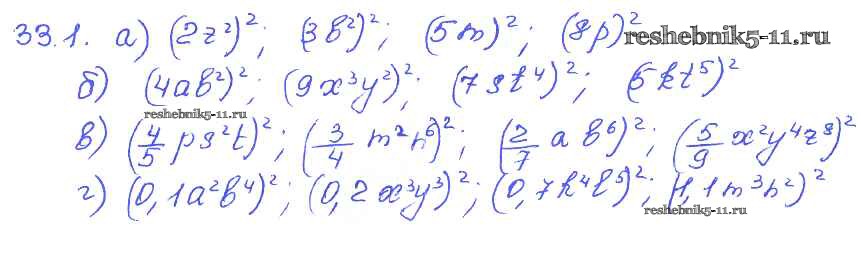 33.1. а) (2z²)²; (3b²)²; (5m)²; (8p)² reshebnik5-11.ru
б) (4ab²)²; (9x³y²)²; (7st⁴)²; (5kt⁵)²
reshebnik5-11.ru
в) (4/5 ps²t)²; (3/4 m²n⁶)²; (2/7 ab⁶)²; (5/9 x²y⁴z⁸)²
г) (0,1a²b⁴)²; (0,2x³y³)²; (0,7k⁴l⁵)²; (1,1m³n²)²
reshebnik5-11.ru